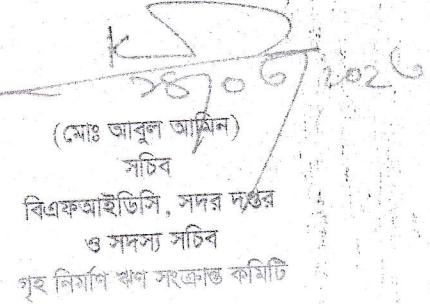 (মোঃ আবুল আমিন)
সচিব
বিএফআইডিসি, সদর দপ্তর
ও সদস্য সচিব
গৃহ নির্মাণ ঋণ সংক্রান্ত কমিটি